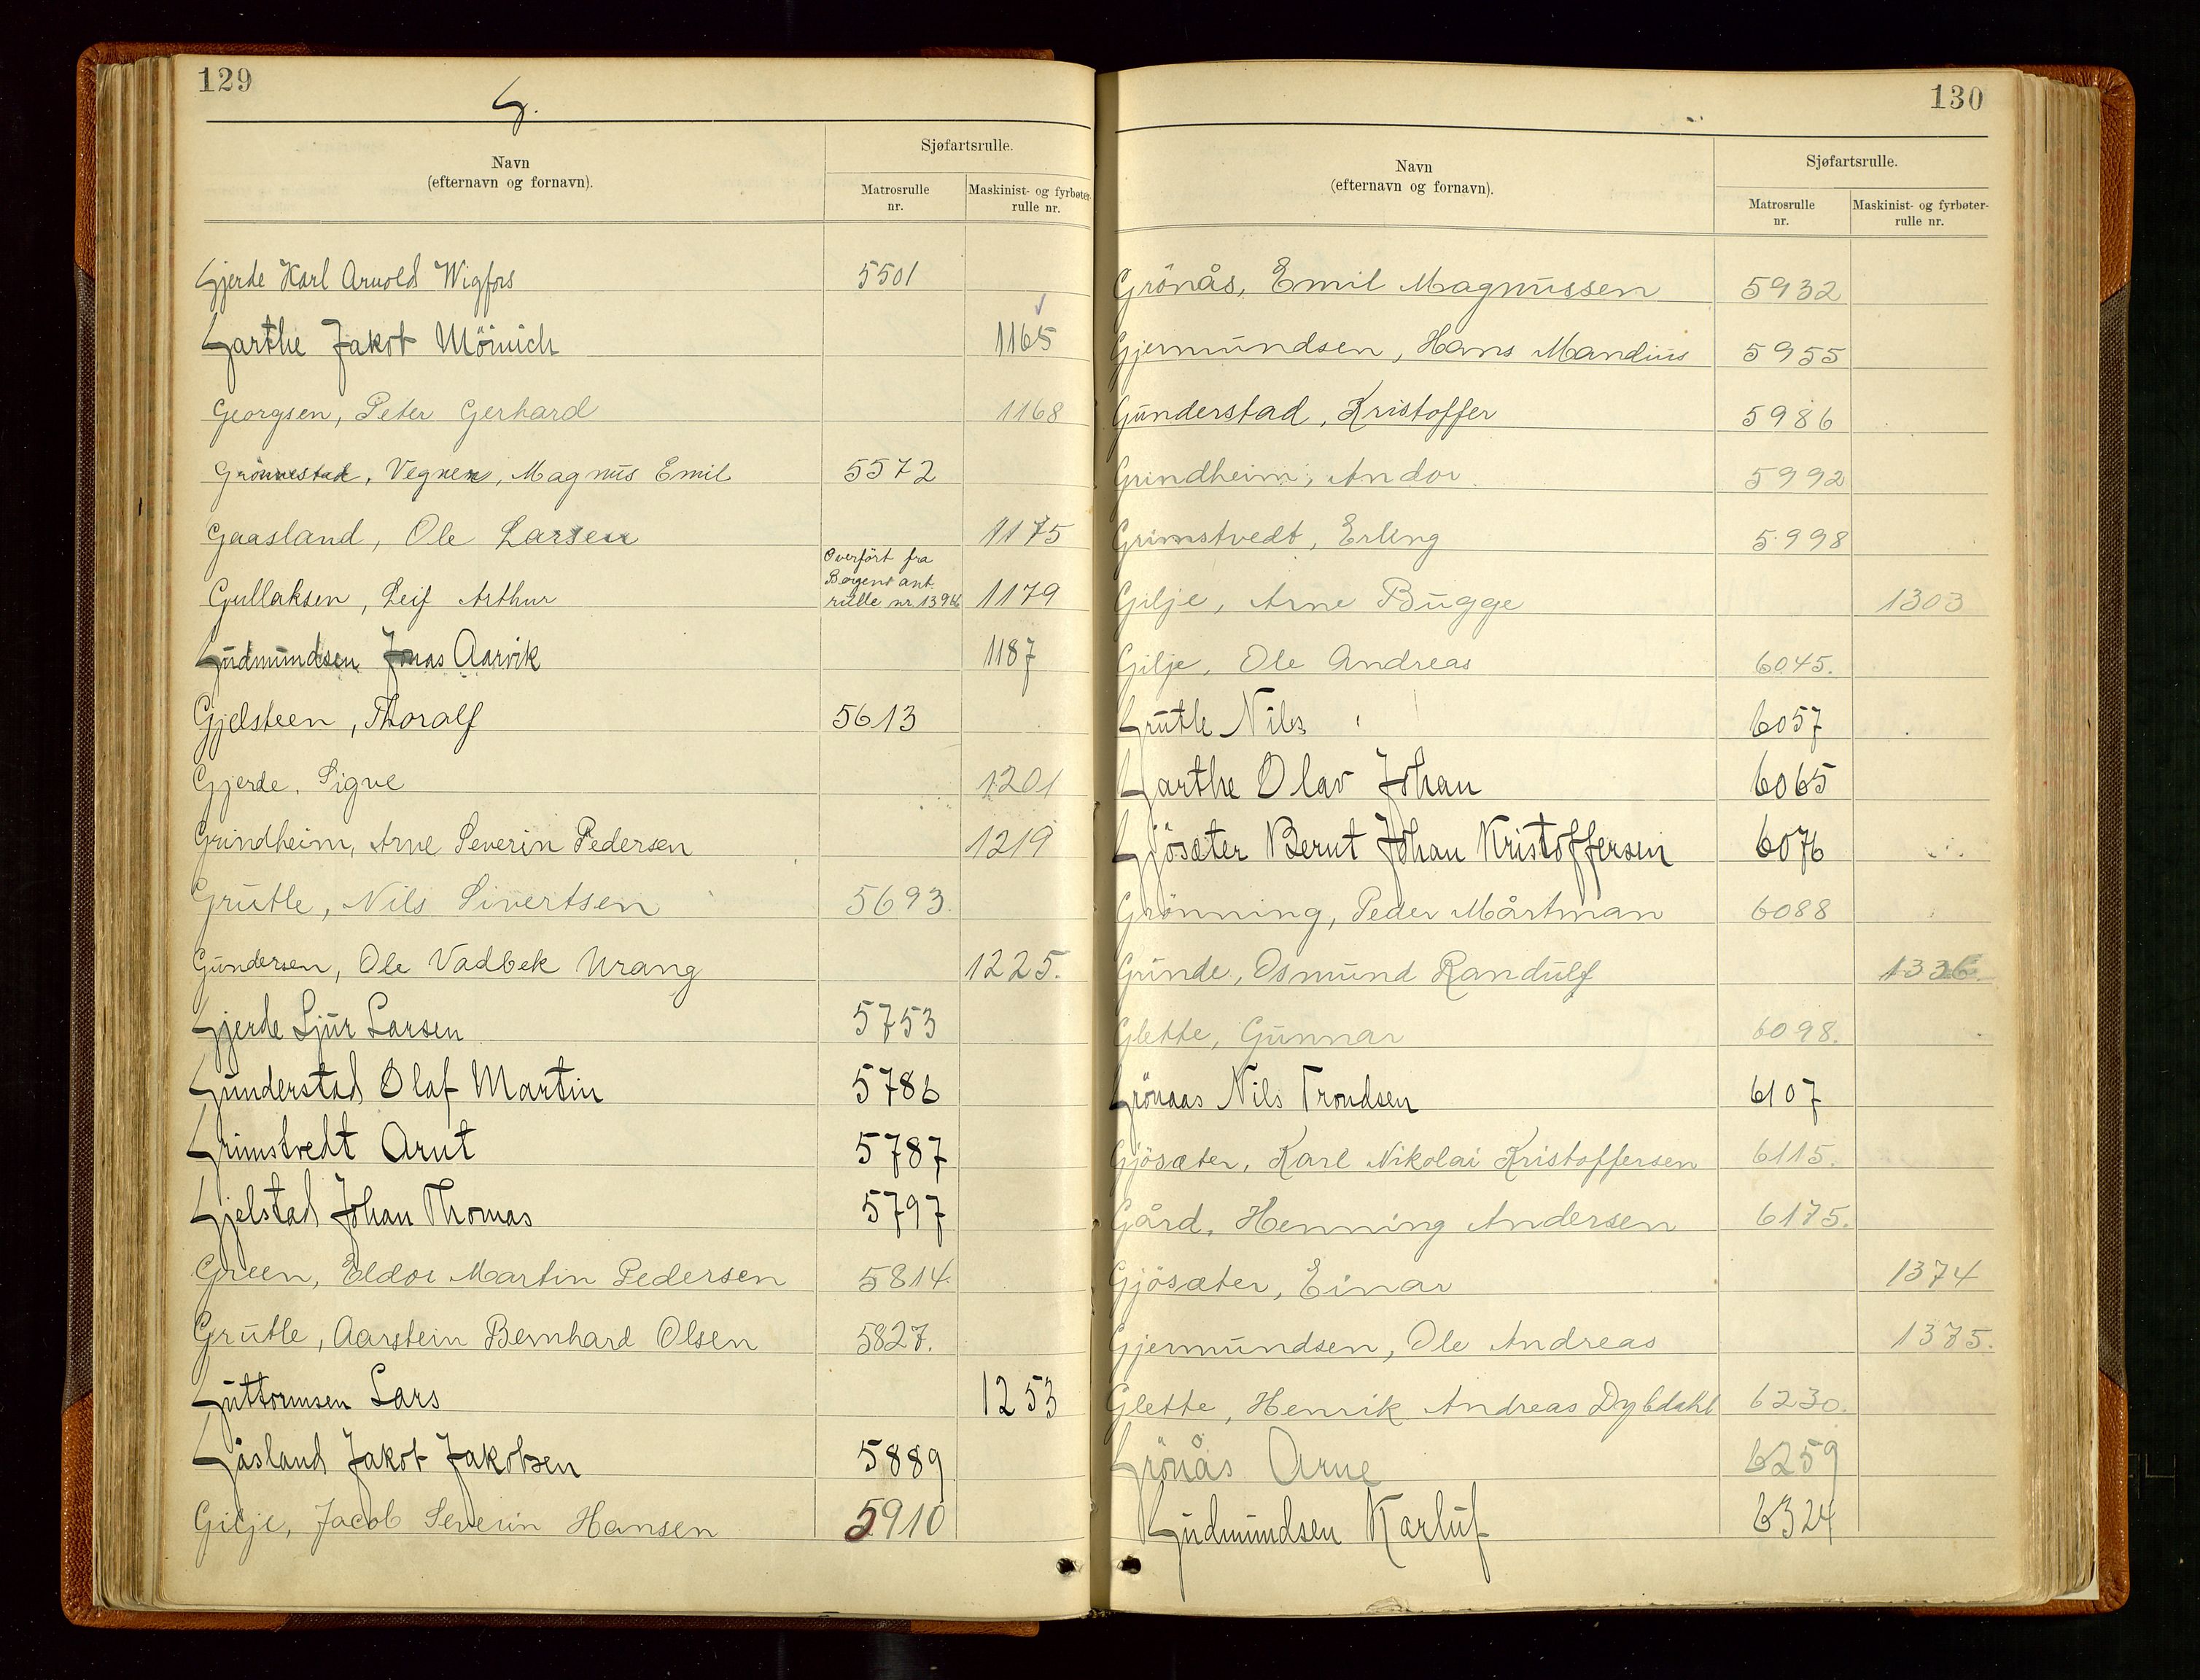 129
G.
Navn
(efternavn og fornavn).
Sjøfartsrulle.
Matrosrulle
nr.
Maskinist- og fyrbøter-
rulle nr.
Gjerde Karl Arnold Wigfors 5501
Garthe Jakob Möinich 1165
Georgsen, Peter Gerhard 1168
Grönnestad, Vegner, Magnus Emil 5572
Gaasland, Ole Larsen 1175
Overført fra
Bergens ant.
rulle nr 1396
Gullaksen, Leif Arthur 1179
Gudmundsen Jonas Aarvik 1187
Gjelsteen, Thoralf 5613
Gjerde, Sigve 1201
Grindheim, Arne Severin Pedersen 1219
Grutle, Nils Sivertsen 5693.
Gundersen, Ole Vadbek Wrang 1225.
Gjerde Sjur Larsen 5753
Gunderstad Olaf Martin 5786
Grimstvedt Arnt 5787
Gjelstad Johan Thomas 5797
Green, Eldor Martin Pedersen 5814.
Grutle, Aarstein Bernhard Olsen 5827.
Guttormsen Lars 1253
Gåsland Jakob Jakobsen 5889
Gilje, Jacob Severin Hansen 5910
130
Navn
(efternavn og fornavn).
Sjøfartsrulle.
Matrosrulle
nr.
Maskinist- og fyrbøter-
rulle nr.
Grönås, Emil Magnussen 5932
Gjermundsen, Hans Mandius 5955
Gunderstad, Kristoffer 5986
Grindheim, Andor 5992
Grimstvedt, Erling 5998
Gilje, Arne Bugge 1303
Gilje, Ole Andreas 6045.
Grutle Nils 6057
Garthe Olav Johan 6065
Gjösæter Bernt Johan Kristoffersen 6076
Grönning, Peder Mårtman 6088
Grinde, Osmund Randulf 1336.
Glette, Gunnar 6098.
Grönaas Nils Trondsen 6107
Gjösæter, Karl Nikolai Kristoffersen 6115.
Gård, Henning Andersen 6175.
Gjösæter, Einar 1374
Gjermundsen, Ole Andreas 1375.
Glette, Henrik Andreas Dybdahl 6230.
Grönås Arne 6259
Gudmundsen Karluf 6324